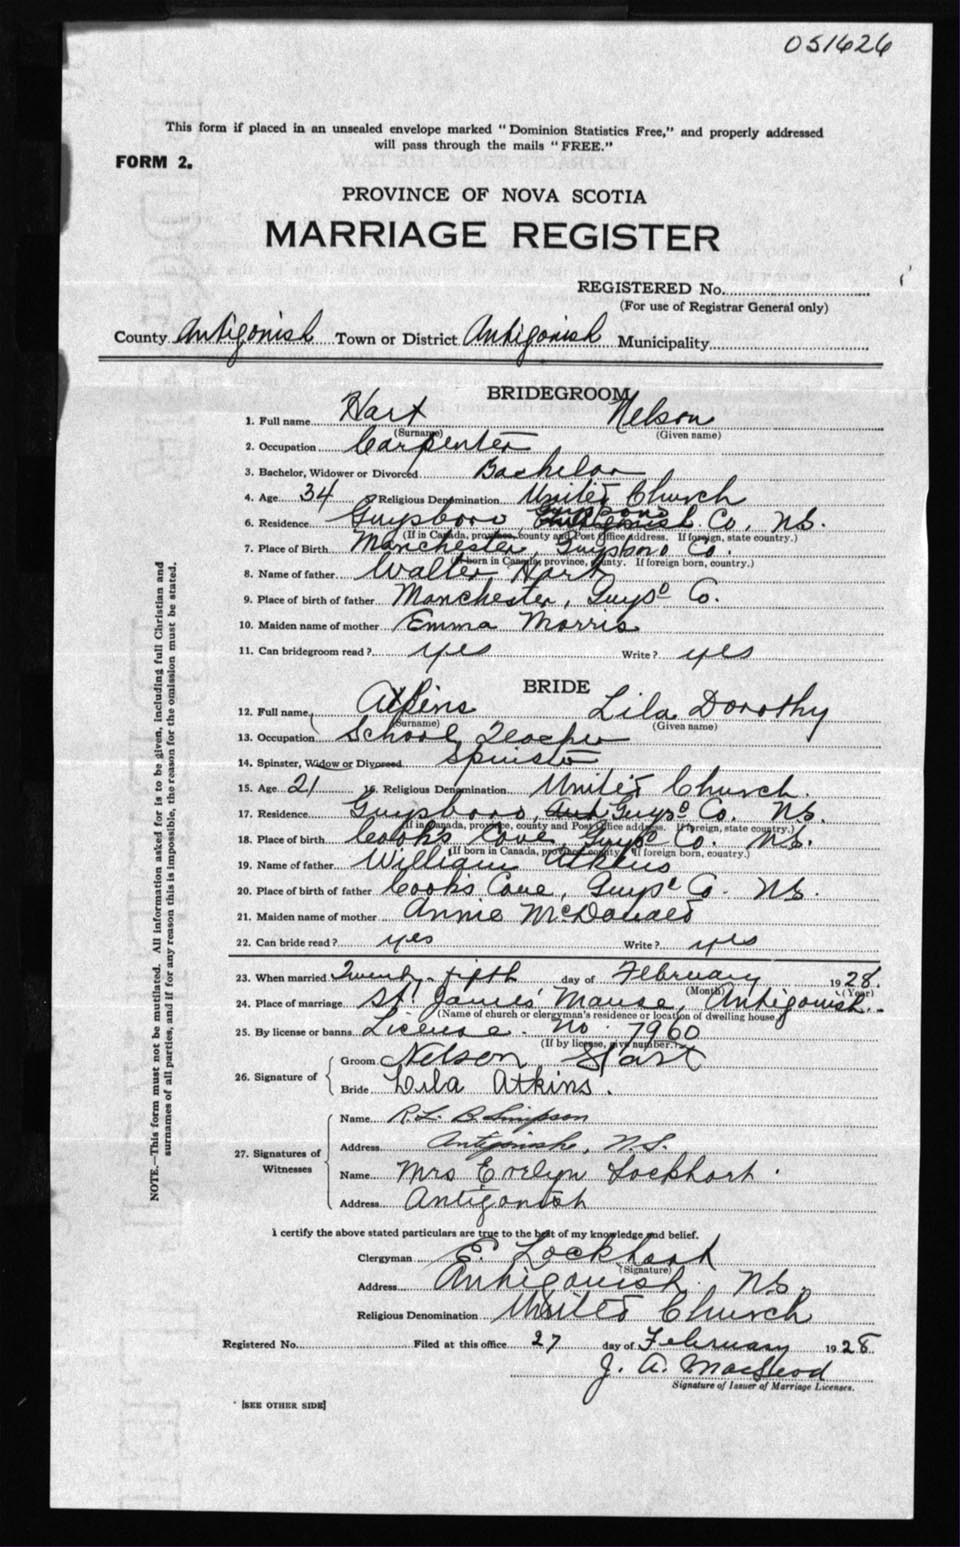 051626
This form if placed in an unsealed envelope marked "Dominion Statistics Free," and properly addressed
will pass through the mails "FREE."
FORM 2.
PROVINCE OF NOVA SCOTIA
MARRIAGE REGISTER
REGISTERED No.
(For use of Registrar General only)
County Antigonish Town or District Antigonish Municipality
BRIDEGROOM
1. Full name Hart Nelson
(Surname) (Given name)
2. Occupation Carpenter
3. Bachelor, Widower or Divorced Bachelor
4. Age 34 Religious Denomination United Church
6. Residence Guysboro, Guysboro Antigonish Co. NS.
(If in Canada, province, county and Post Office address. If foreign, state country.)
7. Place of Birth Manchester, Guysboro Co.
(If born in Canada, province, county. If foreign born, country.)
8. Name of father Walter Hart
9. Place of birth of father Manchester, Guys° Co.
10. Maiden name of mother Emma Morris
11. Can bridegroom read? yes Write? yes
BRIDE
12. Full name Atkins Lila Dorothy
(Surname) (Given name)
13. Occupation School Teacher
14. Spinster, Widow or Divorced Spinster
15. Age 21 16. Religious Denomination United Church.
17. Residence Guysboro, Guys° Co. NS.
(If in Canada, province, county and Post Office address. If foreign, state country.)
18. Place of birth Cooks Cove, Guys° Co. NS.
(If born in Canada, province, county. If foreign born, country.)
19. Name of father William Atkins
20. Place of birth of father Cooks Cove, Guys° Co. NS.
21. Maiden name of mother Annie McDonald
22. Can bride read? yes Write? yes
23. When married Twenty-fifth day of February 1928.
(Month) (Year)
24. Place of marriage St. James' Manse, Antigonish.
(Name of church or clergyman's residence or location of dwelling house.)
25. By license or banns License. No. 7960
(If by license, give number.)
26. Signature of
Groom Nelson Hart
Bride Lila Atkins.
27. Signatures of Witnesses
Name R. L. B. Simpson
Address Antigonish, N.S.
Name Mrs Evelyn Lockhart.
Address Antigonish
I certify the above stated particulars are true to the best of my knowledge and belief.
Clergyman E. Lockhart
(Signature)
Address Antigonish. NS.
Religious Denomination United Church
Registered No. Filed at this office 27 day of February 1928.
J. A. MacLeod
Signature of Issuer of Marriage Licenses.
[SEE OTHER SIDE]
NOTE.—This form must not be mutilated. All information asked for is to be given, including full Christian and
surnames of all parties, and if for any reason this is impossible, the reason for the omission must be stated.